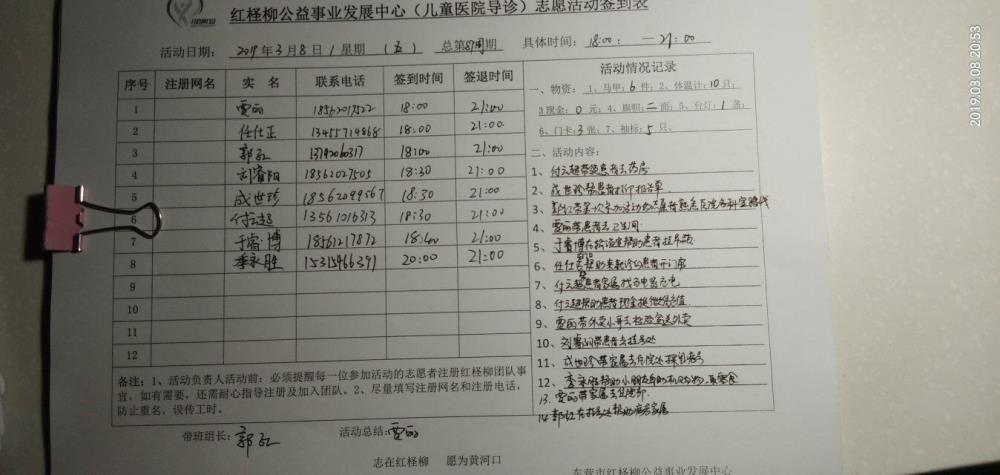 红柽柳公益事业发展中心（儿童医院导诊）志愿活动签到表
活动日期：2019年3月8日1星期（五） 总第87周期 具体时间：18:00：—21:00
序号 注册网名 实 名 联系电话 签到时间 签退时间 活动情况记录
1 贾丽 18562017522 18:00 21:00
2 任仕正 13455714868 18:00 21:00
3 郭红 13792060317 18:00 21:00
4 刘睿阳 18562027505 18:30 21:00
5 成世珍 18562099567 18:30 21:00
6 付云超 13561016313 18:30 21:00
7 于睿博 18561217872 18:40 21:00
8 季永胜 15315466391 20:00 21:00
9
10
11
12
一、物资：1、马甲：6件；2、体温计：10只；
3现金：0元；4、旗帜：二面；5、台灯：1条；
6、门卡：3张；7、袖标：5只。
二、活动内容：
1、付云超带领患者去药房
2、成世珍帮患者打印报告单
3、
4、贾丽带患者去卫生间
5、于睿博在
6、任仕正帮助来就诊的患者开门帘
7、付云超患者家属找充电器充电
8、付云超帮助患者现金换微信充值
9、贾丽带外卖小哥去检验室送外卖
10、刘睿阳带患者去挂号处
11、成世珍带家属去住院处
12、季永胜帮助小朋友
13、贾丽带家属去
14、郭红在
备注：1、活动负责人活动前：必须提醒每一位参加活动的志愿者注册红柽柳团队事
宜，如有需要，还需耐心指导注册及加入团队。2、尽量填写注册网名和注册电话，
防止重名，误传工时。
带班组长：郭红 活动总结：贾丽
志在红柽柳 愿为黄河口
东营市红柽柳公益事业发展中心
2019.03.08 20:53